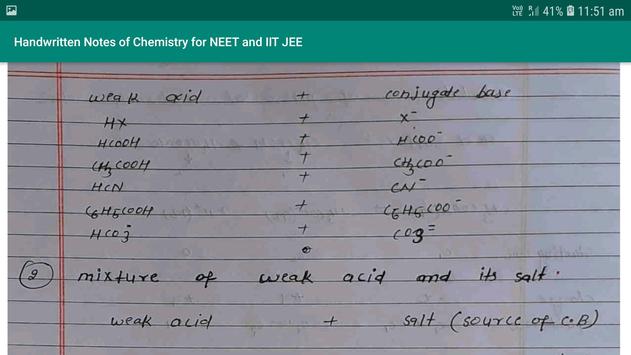 41% 11:51 am
Handwritten Notes of Chemistry for NEET and IIT JEE
weak acid + conjugate base
HX + X⁻
HCOOH + HCOO⁻
CH₃COOH + CH₃COO⁻
HCN + CN⁻
C₆H₅COOH + C₆H₅COO⁻
HCO₃⁻ + CO₃⁼
② mixture of weak acid and its salt.
weak acid + salt (source of C.B)